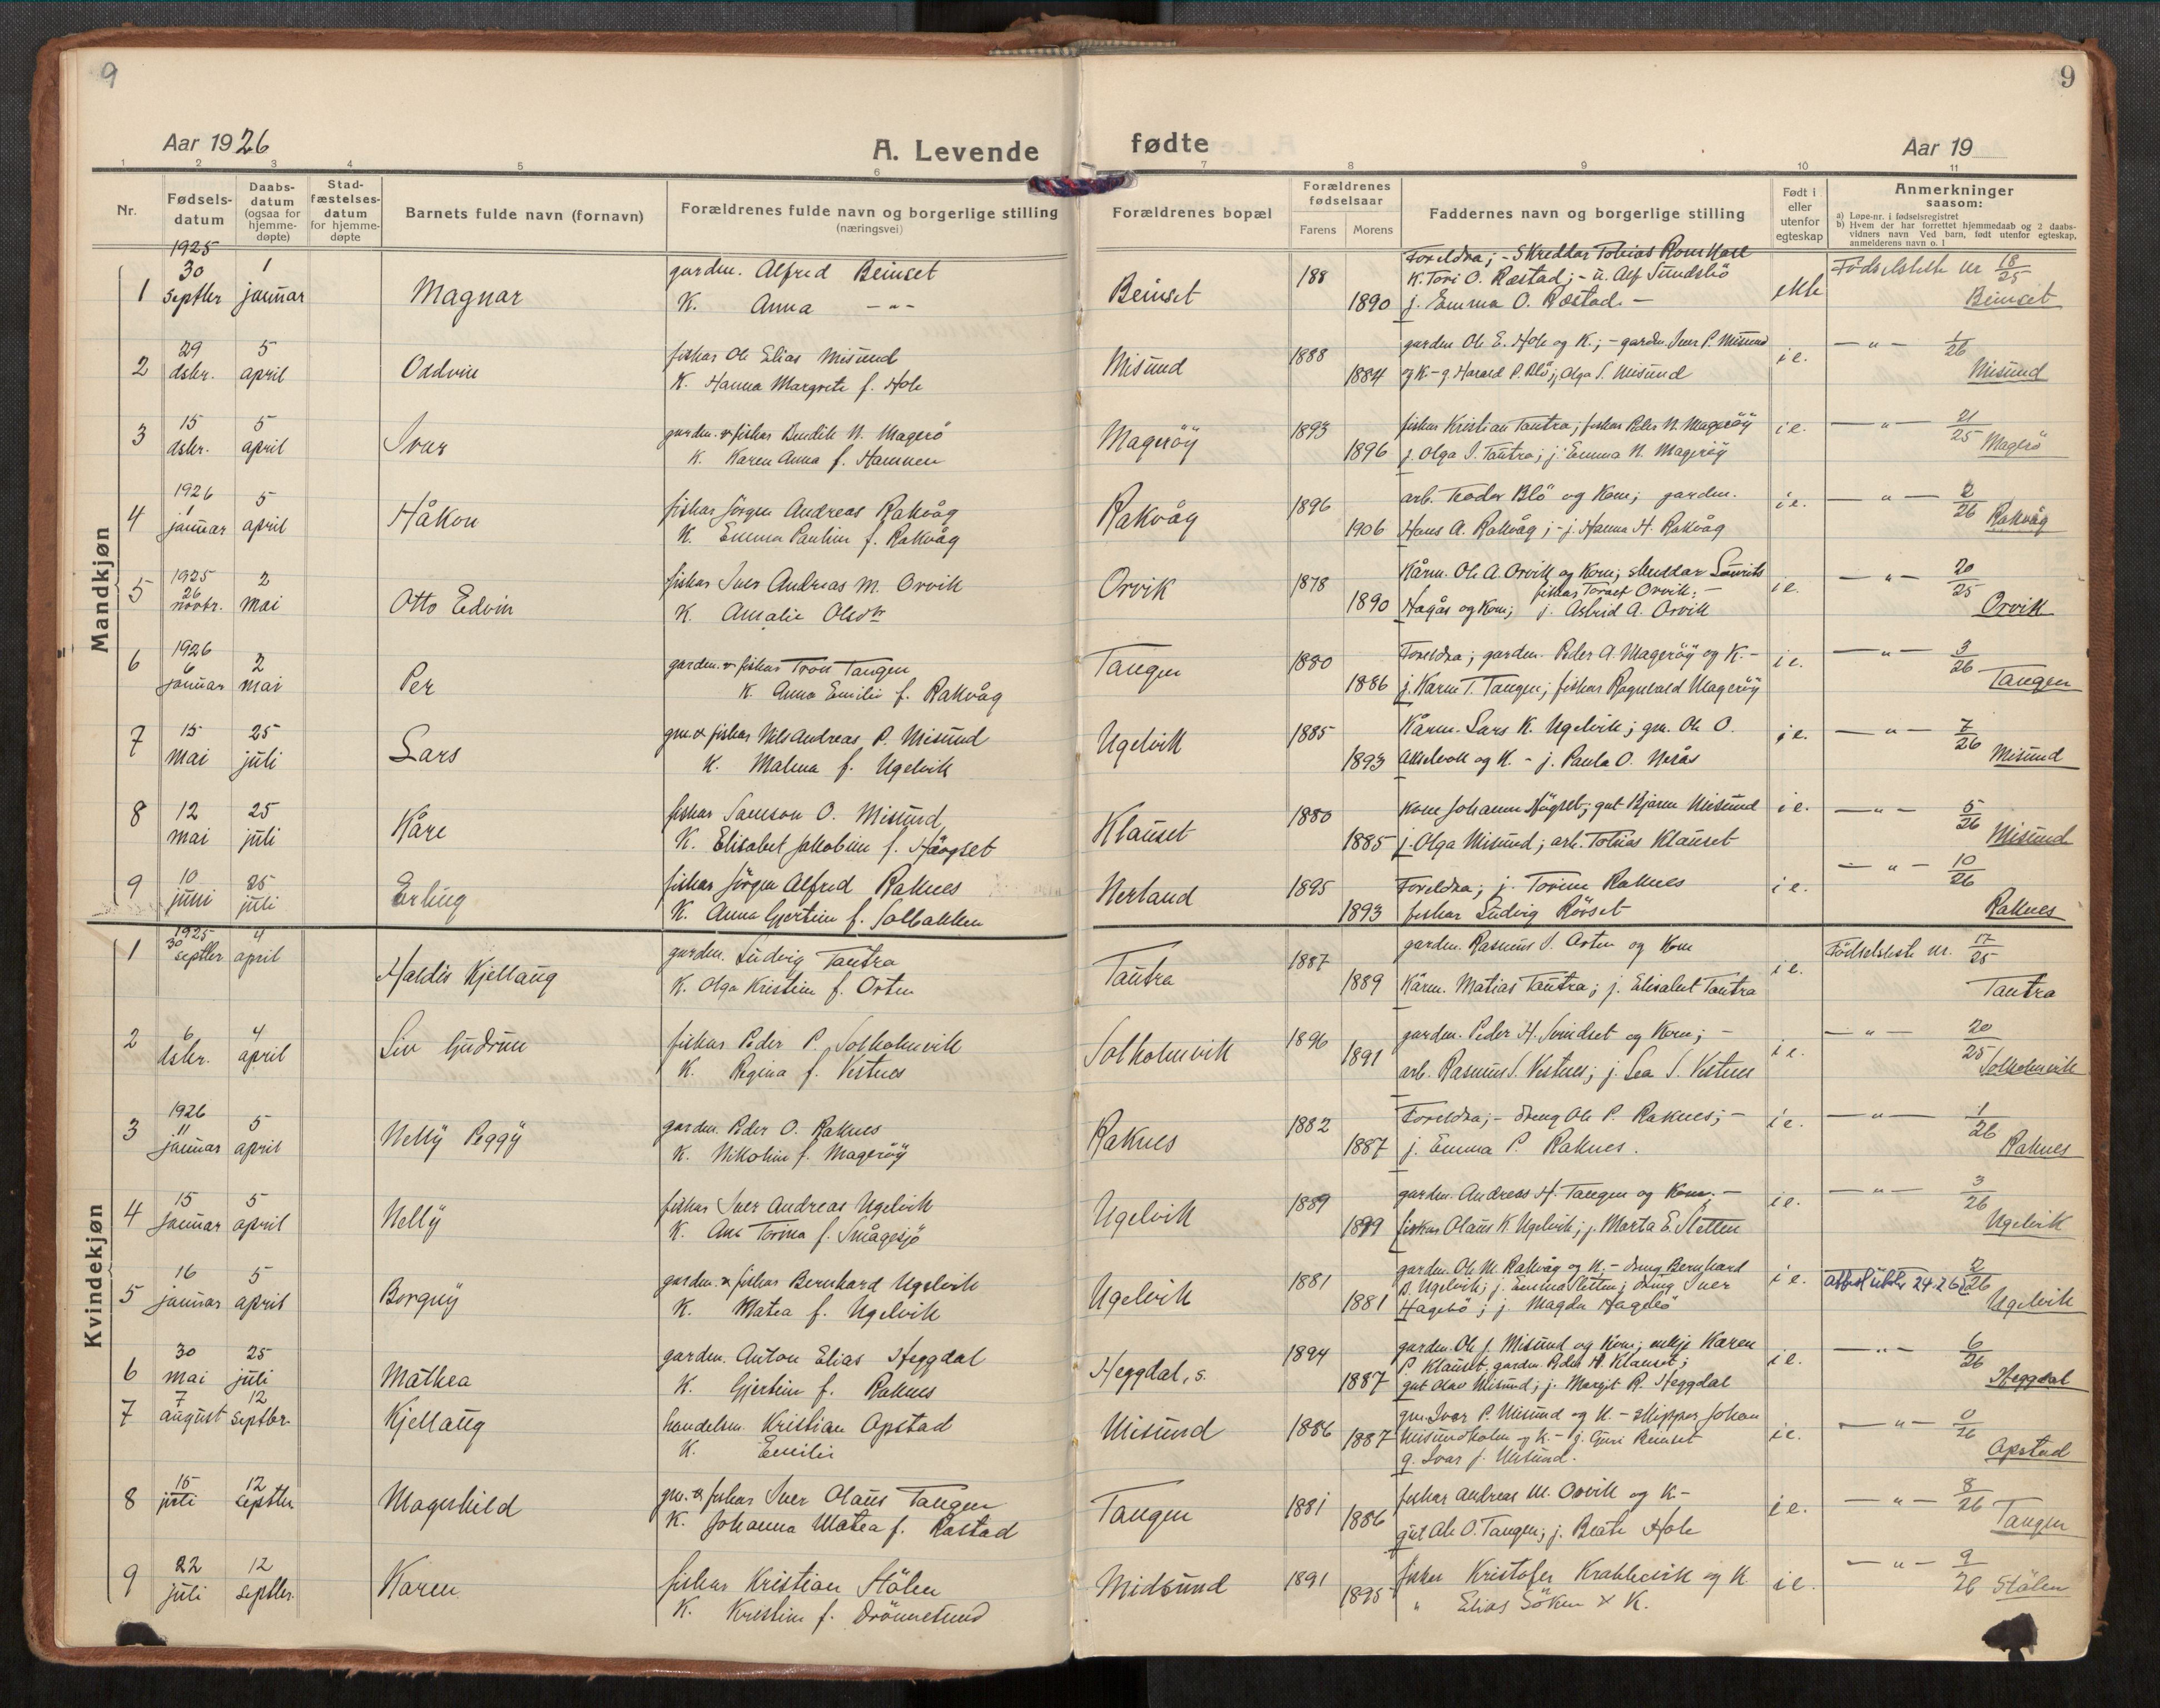 9
9
Aar 1926
A. Levende
fødte
Aar 19
1 2 3 4 5 6 7 8 9 10 11
Nr.
Fødselsdatum
Daabsdatum (ogsaa for hjemmedøpte)
Stadfæstelsesdatum for hjemmedøpte
Barnets fulde navn (fornavn)
Forældrenes fulde navn og borgerlige stilling (næringsvei)
Forældrenes bopæl
Forældrenes fødselsaar
Farens Morens
Faddernes navn og borgerlige stilling
Født i eller utenfor egteskap
Anmerkninger saasom:
a) Løpe-nr. i fødselsregistret
b) Hvem der har forrettet hjemmedaab og 2 daabsvidners navn Ved barn, født utenfor egteskap, anmelderens navn o. l
Mandkjøn
1 1925 30 septber 1 januar Magnar
gardm. Alfred Beinset
K. Anna — " —
Beinset 188 1890
Foreldra; - Skreddar Tobias
K. Tori O. Ræstad; - u. Alf Sundsbö
j. Emma O. Ræstad. —
ekte
Fødselsliste nr 18/25
Beinset
2 29 dsbr. 5 april Oddvin
fiskar Ole Elias Misund
K. Hanna Margrete f. Hole
Misund 1888 1884
gardm Ole E. Hole og K.; - gardm. Iver P. Misund
og K - g. Harald P. Blö; Olga S. Misund
i e.
— " — 1/26
Misund
3 15 dsbr. 5 april Ivar
gardm. & fiskar Bendik N. Magerö
K. Karen Anna f. Hamnen
Magerøy 1893 1896
fiskar Kristian Tautra; fiskar Peder N. Magerøy
j. Olga I. Tautra; j. Emma N. Magerøy
i e.
— " — 21/25 Magerö
4 1926 1 januar 5 april Håkon
fiskar Jörgen Andreas Rakvåg
K. Emma Pauline f. Rakvåg
Rakvåg 1896 1906
arb. Teodor Blö og Kone; gardm.
Hans A. Rakvåg; - j. Hanna H. Rakvåg
i e.
— " — 2/26 Rakvåg
5 1925 26 novbr. 2 mai Otto Edvin
fiskar Iver Andreas M. Orvik
K. Amalie Olsdtr
Orvik 1878 1890
Kårm. Ole A. Orvik og Kone; skreddar Laurits
fiskar Toralf Orvik; -
Hagås og Kone; j. Astrid A. Orvik
i e.
— " — 20/25
Orvik
6 1926 6 januar 2 mai Per
gardm. & fiskar Tron Tangen
K. Anna Emilie f. Rakvåg
Tangen 1880 1886
Foreldra; gardm. Peder A. Magerøy og K. -
j. Karen T. Tangen; fiskar Ragnvald Magerøy
i e.
— " — 3/26
Tangen
7 15 mai 25 juli Lars
gm. & fiskar Nils Andreas P. Misund
K. Malena f. Ugelvik
Ugelvik 1885 1893
Kårm. Lars K. Ugelvik; gm. Ole O.
Akselvoll og K. - j. Paula O. Nerås
i e.
— " — 7/26
Misund
8 12 mai 25 juli Kåre
fiskar Samson O. Misund
K. Elisabet Jakobine f. Haugset
Klauset 1880 1885
Kone Johanne Haugset; gut Bjarne Misund
j. Olga Misund; arb. Tobias Klauset
i e.
— " — 5/26
Misund
9 10 juni 25 juli Erling
fiskar Jörgen Alfred Raknes
K. Anna Gjertine f. Solbakken
Nerland 1895 1893
Foreldra; j. Torine Raknes
fiskar Ludvig Rörset
i e.
— " — 10/26
Raknes
Kvindekjøn
1 1925 30 septber 4 april Haldis Kjellaug
gardm. Ludvig Tautra
K. Olga Kristine f. Orten
Tautra 1887 1889
gardm. Rasmus S. Orten og Kone
Kårm. Matias Tautra; j. Elisabet Tautra
i e.
Fødselsliste nr. 17/25
Tautra
2 6 dsbr. 4 april Liv Gudrun
fiskar Peder P. Solholmvik
K. Regina f. Vestnes
Solholmvik 1896 1891
gardm. Peder H. Svindset og Kone; -
arb. Rasmus S. Vestnes; j. Lea S. Vestnes
i e.
— " — 20/25
Solholmvik
3 1926 11 januar 5 april Nelly Peggy
gardm. Peder O. Raknes
K. Nikoline f. Magerøy
Raknes 1882 1887
Foreldra; - dreng Ole P. Raknes; -
j. Emma P. Raknes.
i e.
— " — 1/26
Raknes
4 15 januar 5 april Nelly
fiskar Iver Andreas Ugelvik
K. Ane Torina f. Smågesjö
Ugelvik 1889 1899
gardm. Andreas H. Tangen og Kone; -
fiskar Olaus K. Ugelvik; j. Marta E. Sletten
i e.
— " — 3/26
Ugelvik
5 16 januar 5 april Borguy
gardm. & fiskar Bernhard Ugelvik
K. Matea f. Ugelvik
Ugelvik 1881 1881
gardm. Ole M. Rakvåg og K. - dreng Bernhard
B. Ugelvik; j. Emma Sletten; dreng Iver
Hagebö; j. Magda Hagebö
i e.
24.26 2/26
Ugelvik
6 30 mai 25 juli Mathea
gardm. Anton Elias Heggdal
K. Gjertine f. Raknes
Heggdal, s. 1894 1887
gardm. Ole J. Misund og Kone; enkje Karen
P. Klauset; gardm. Peder H. Klauset;
gut Olav Misund; j. Margit R. Heggdal
i e.
— " — 6/26
Heggdal
7 7 august 12 septber. Kjellaug
handelsm. Kristian Opstad
K. Emilie
Misund 1886 1887
gm. Ivar P. Misund og K. - skipper Johan
Misundholm og K. - j. Guri Beinset
g. Ivar J. Misund.
i e.
— " — 0/26
Opstad
8 15 juli 12 septber Magnhild
gm. & fiskar Iver Olaus Tangen
K. Johanna Matea f. Rastad
Tangen 1881 1886
fiskar Andreas M. Orvik og K -
gut Ole O. Tangen; j. Beate Hole
i e.
— " — 8/26
Tangen
9 22 juli 12 septber. Karen
fiskar Kristian Stålen
K. Kristine f. Drönnesund
Midsund 1891 1895
fisker Kristofer Krabbevik og K
" Elias Söken & K.
i e.
— " — 9/26 Stålen